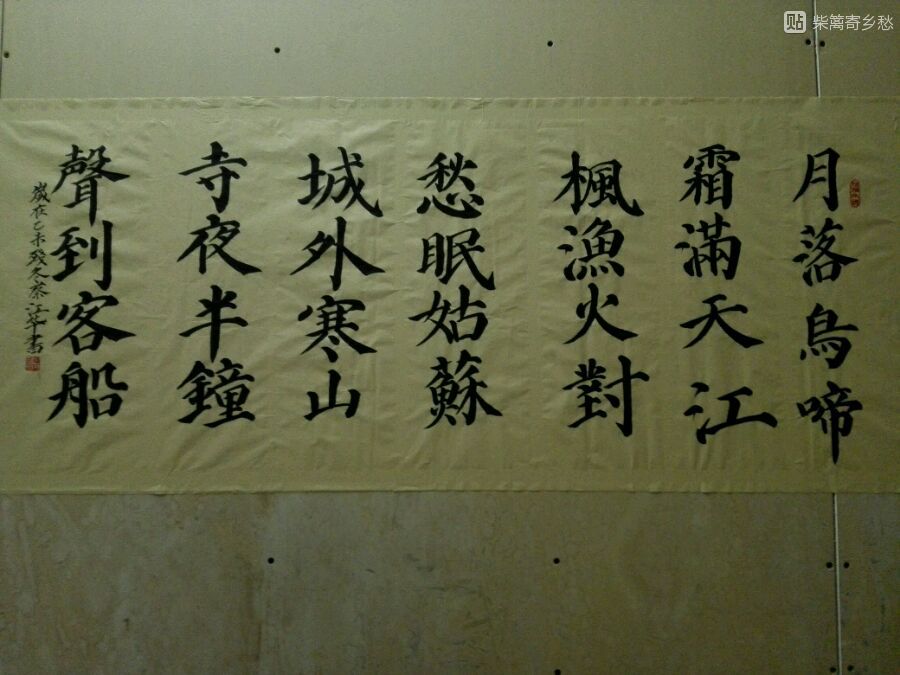 月落烏啼
霜滿天江
楓漁火對
愁眠姑蘇
城外寒山
寺夜半鐘
聲到客船
歲在乙未殘冬 江華書
貼 柴篱寄乡愁